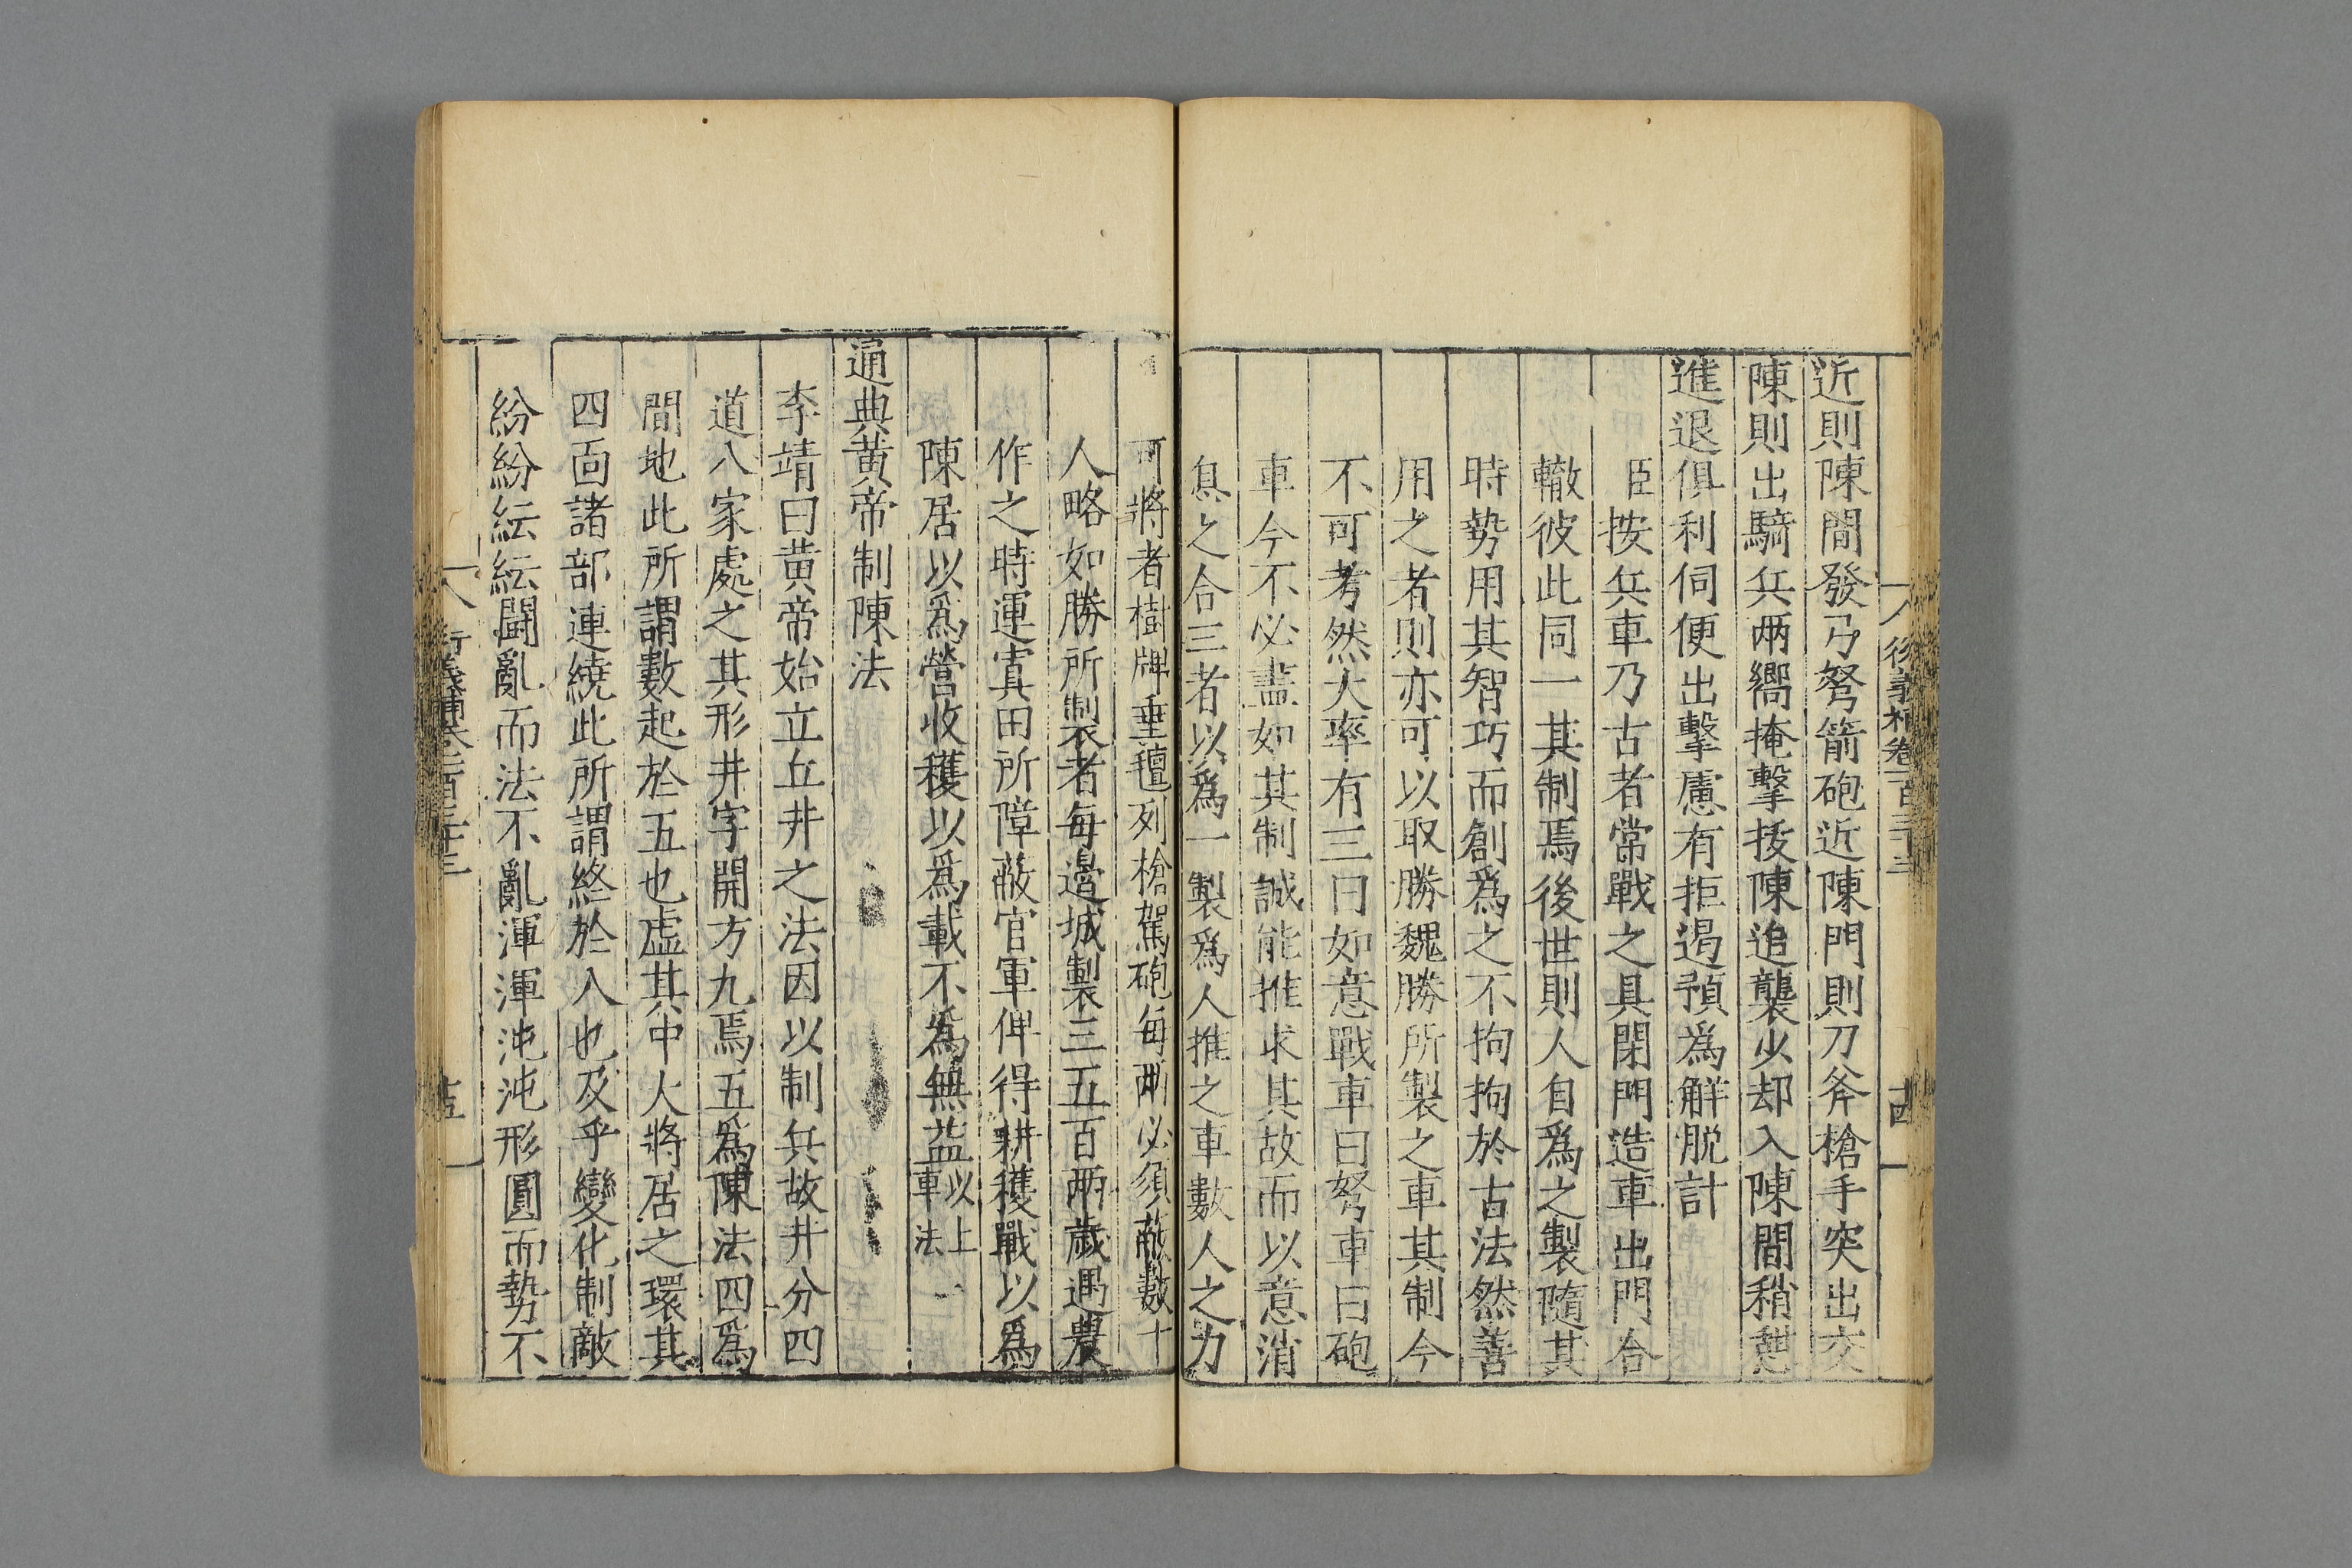 近則陳間發弓弩箭砲近陳門則刀斧槍手突出交
陳則出騎兵兩嚮掩擊㧞陳追襲少却入陳間稍憇
進退俱利伺便出擊慮有拒遏預爲解脱計
臣按兵車乃古者常戰之具閉門造車出門合
轍彼此同一其制焉後世則人自爲之製隨其
時勢用其智巧而創爲之不拘拘於古法然善
用之者則亦可以取勝魏勝所製之車其制今
不可考然大率有三曰如意戰車曰弩車曰砲
車今不必盡如其制誠能推求其故而以意消
息之合三者以爲一製爲人推之車數人之力
可將者樹牌垂氊列槍駕砲每兩必須蔽數十
人略如勝所製者每邊城製三五百兩歲遇農
作之時運寘田所障蔽官軍俾得耕穫戰以爲
陳居以爲營收穫以爲載不爲無益以上車法
通典黄帝制陳法
李靖曰黄帝始立丘井之法因以制兵故井分四
道八家處之其形井字開方九焉五爲陳法四爲
間地此所謂數起於五也虛其中大將居之環其
四面諸部連繞此所謂終於八也及乎變化制敵
紛紛紜紜闘亂而法不亂渾渾沌沌形圓而勢不